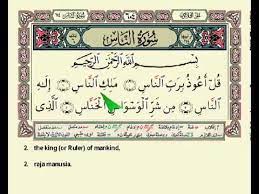 سُورَةُ النَّاسِ
بِسْمِ اللَّهِ الرَّحْمَٰنِ الرَّحِيمِ
قُلْ أَعُوذُ بِرَبِّ النَّاسِ ۝ مَلِكِ النَّاسِ ۝ إِلَٰهِ
النَّاسِ ۝ مِن شَرِّ الْوَسْوَاسِ الْخَنَّاسِ ۝ الَّذِي
2. the king (or Ruler) of mankind,
2. raja manusia,